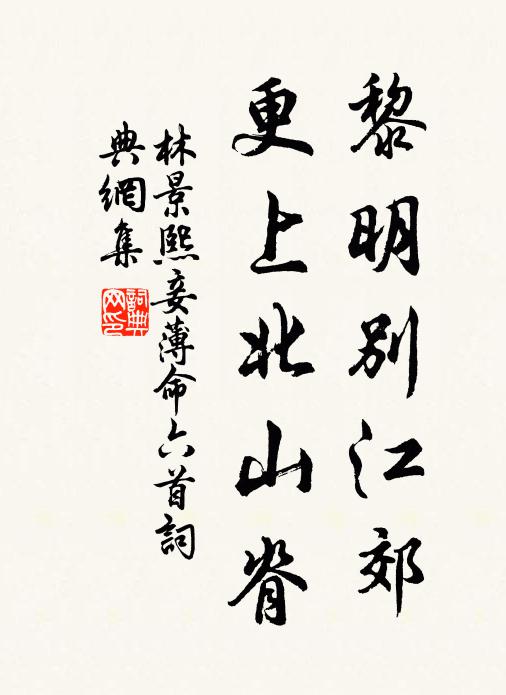 黎明別江郊
更上北山脊
林景熙妾薄命六首詞
典網集
詞典
网印